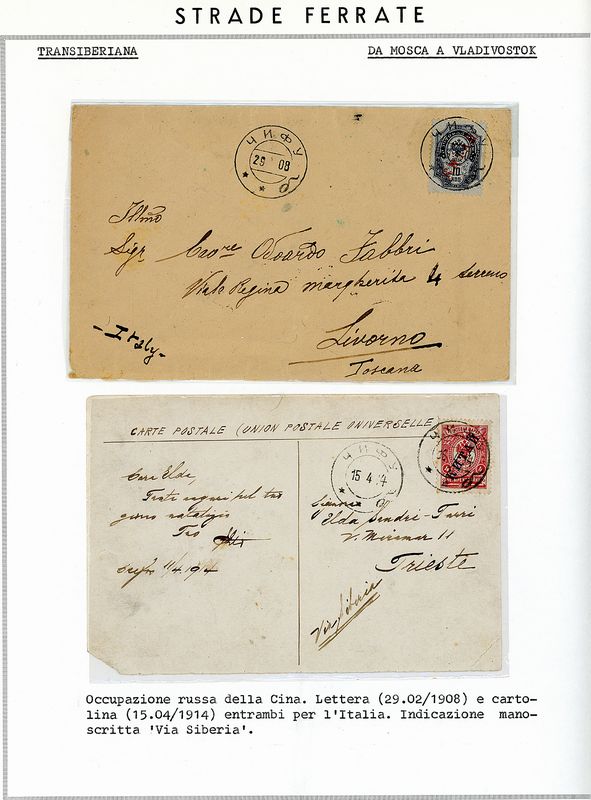 STRADE FERRATE
TRANSIBERIANA
DA MOSCA A VLADIVOSTOK
ЧИФУ
29 08
ЧИФУ
Illmo
Sigr Odoardo Fabbri
Viale Regina margherita 4 terreno
Livorno
Toscana
-Italy-
CARTE POSTALE (UNION POSTALE UNIVERSELLE
ЧИФУ
15 4 14
КИТАЙ
Cara Elda,
giorno natalizio
Tuo
11/4 1914
Elda
V. Miramar 11
Trieste
Via Siberia
Occupazione russa della Cina. Lettera (29.02/1908) e carto-
lina (15.04/1914) entrambi per l'Italia. Indicazione mano-
scritta 'Via Siberia'.